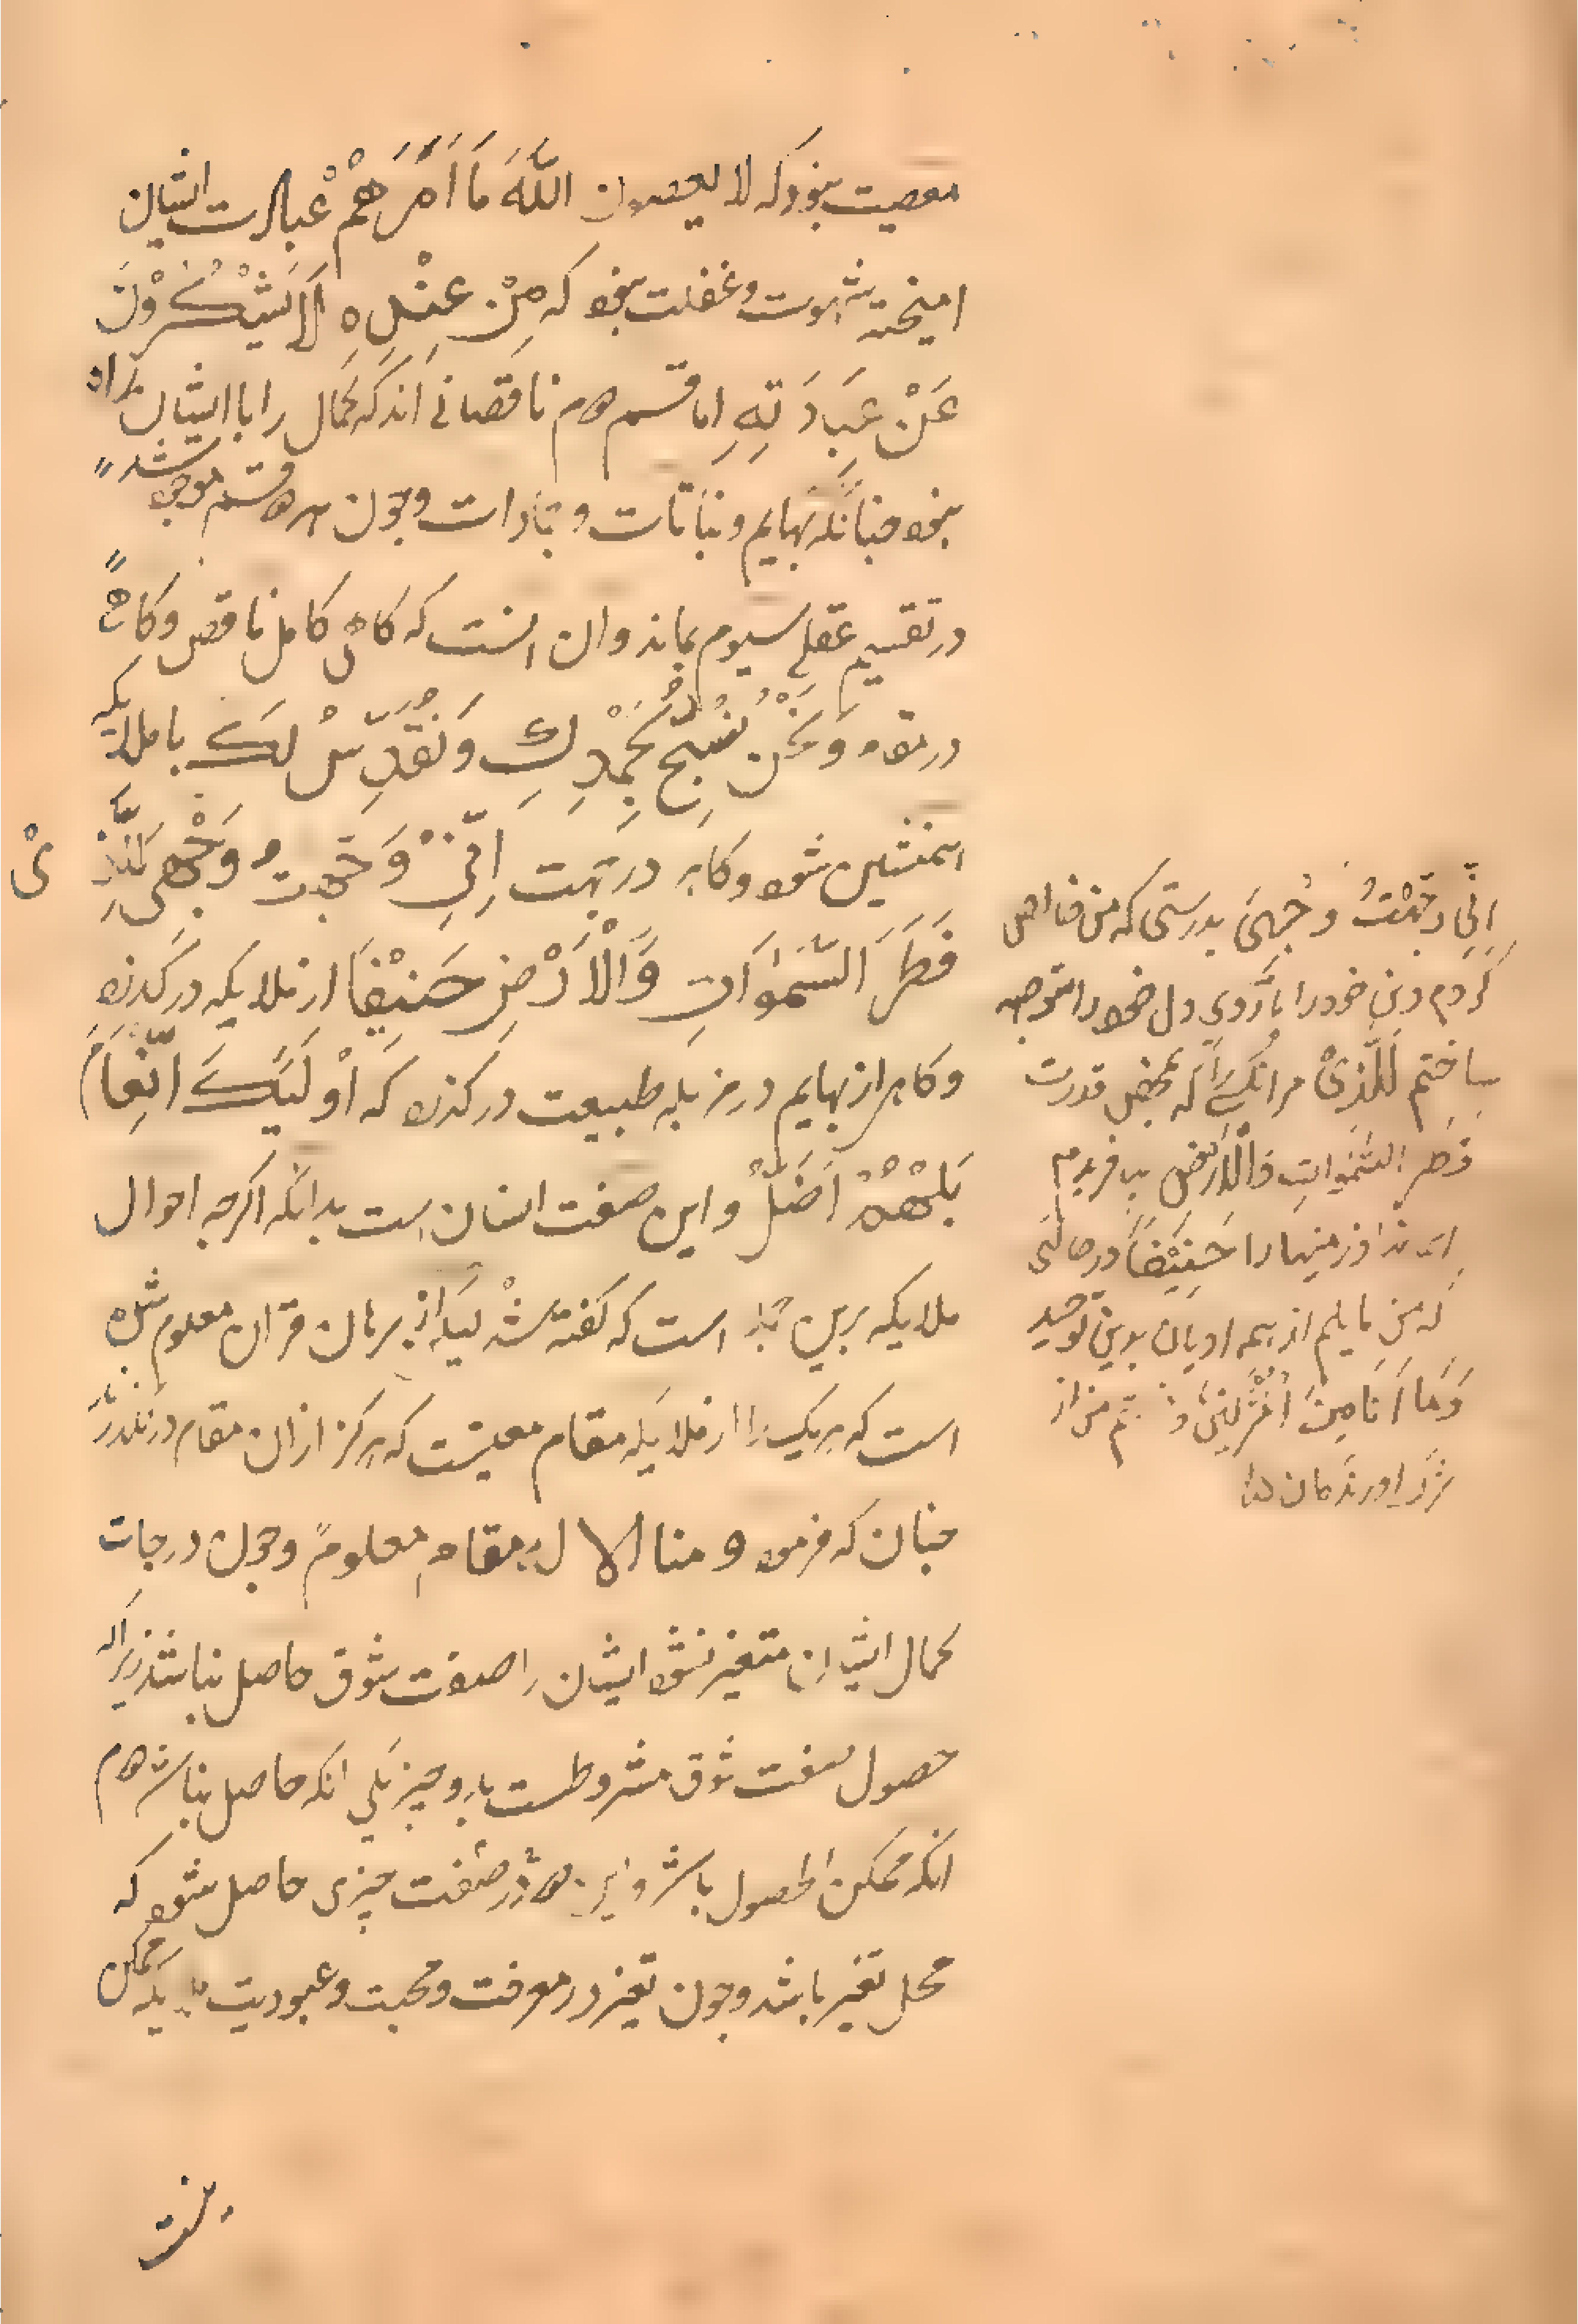 معصیت نبود که لا یعصون اللَّهَ مَا أَمَرَهُمْ عبادت ایشان
امیخته شهوت و غفلت نبود که مِنْ عِنْدِهِ لَا یَسْتَکْبِرُوْنَ
عَنْ عِبَادَتِهِ اما قسم دوم ناقصانی اند که کمال را با ایشان راه
نبود چنانکه بهایم و نباتات و جمادات و چون هر دو قسم موجود شد
در تقسیم عقلی سیوم بماند و ان انست که گاهی کامل ناقص و گاهی
در مقام وَنَحْنُ نُسَبِّحُ بِحَمْدِكَ وَنُقَدِّسُ لَكَ با ملایکه
همنشین شود و گاه در مرتبت اِنِّیْ وَجَّهْتُ وَجْهِیَ لِلَّذِیْ
فَطَرَ السَّمٰوَاتِ وَالْاَرْضِ حَنِیْفًا از ملایکه درگذرد
و گاه از بهایم در مزبله طبیعت درگذرد که اُوْلَئِكَ کَالْاَنْعَامِ
بَلْ هُمْ اَضَلُّ و این صفت انسان است بدانکه اگرچه احوال
ملایکه برین جمله است که گفته شد لیکن از برهان قران معلوم شده
است که هر یک را از ملایکه مقام معینست که هرگز ازان مقام در نگذرند
چنان که فرمود و منا الا له مقام معلوم و چون درجات
کمال ایشان متغیر نشود ایشان را صفت شوق حاصل نباشد زیرا که
حصول صفت شوق مشروطست بدو چیز یکی انکه حاصل نباشد دوم
انکه ممکن الحصول باشد و این هر دو صفت چیزی حاصل شود که
محل تغیر باشد و چون تغیر در معرفت و محبت و عبودیت ملایکه ممکن
اِنِّی وَجَّهْتُ وَجْهِیَ بدرستی که من خالص
کردم دین خود را یا روی دل خود را متوجه
ساختم لِلَّذِیْ مر انکسی را که بمحض قدرت
فَطَرَ السَّمٰوَاتِ وَالْاَرْضَ بیافرید
اسمانها و زمینها را حَنِیْفًا در حالتی
که من مایلم از همه ادیان بدین توحید
وَمَا اَنَا مِنَ الْمُشْرِکِیْنَ و نیستم من از
شرک اورندگان
نیست